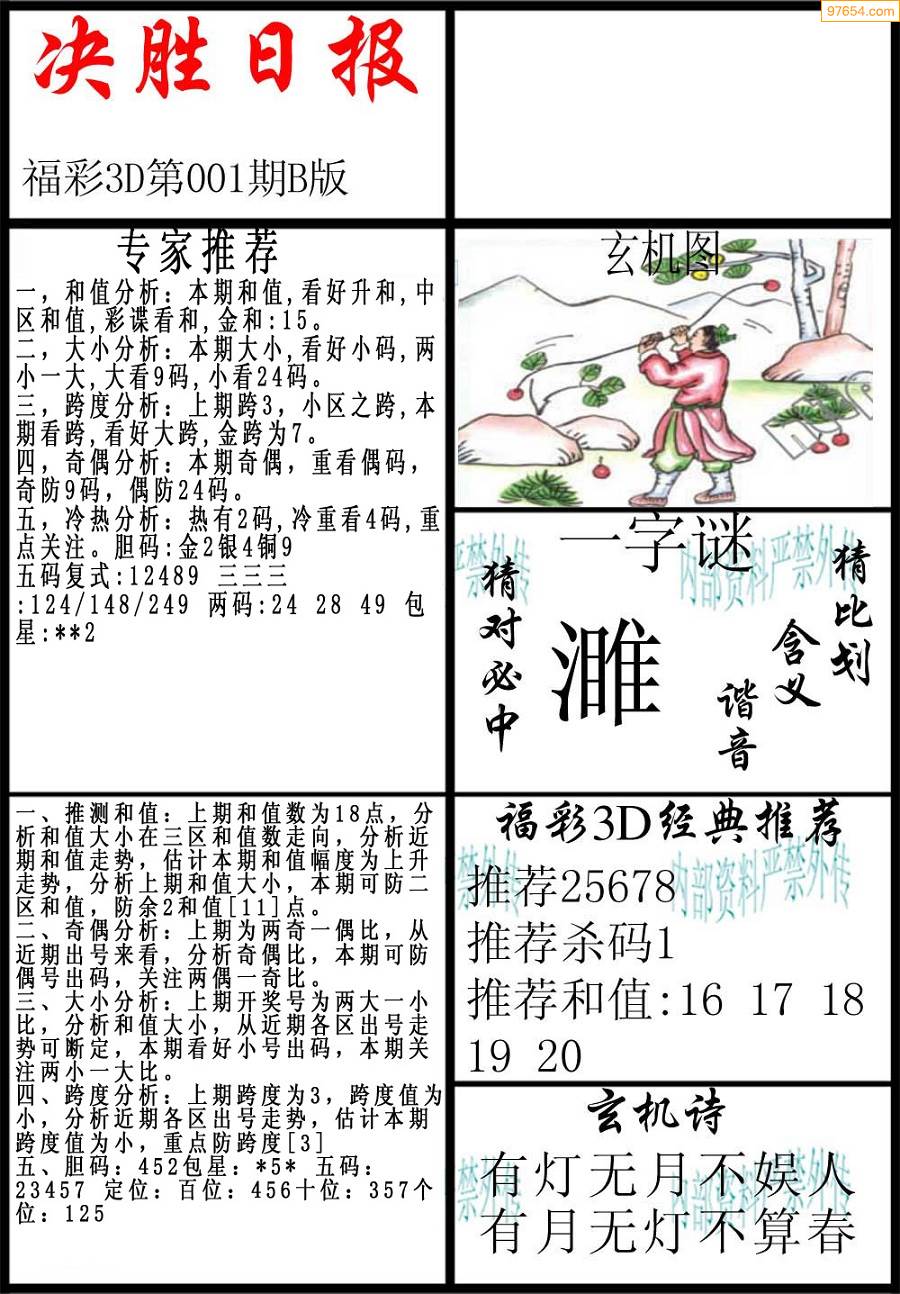 97654.com
决胜日报
福彩3D第001期B版
专家推荐
一，和值分析：本期和值,看好升和,中
区和值,彩谍看和,金和:15。
二，大小分析：本期大小,看好小码,两
小一大,大看9码,小看24码。
三，跨度分析：上期跨3，小区之跨,本
期看跨,看好大跨,金跨为7。
四，奇偶分析：本期奇偶，重看偶码，
奇防9码，偶防24码。
五，冷热分析：热有2码,冷重看4码,重
点关注。胆码:金2银4铜9
五码复式:12489 三三三
:124/148/249 两码:24 28 49 包
星:**2
玄机图
一字谜
猜对必中
濉
谐音
含义
猜比划
内部资料严禁外传
一、推测和值：上期和值数为18点，分
析和值大小在三区和值数走向，分析近
期和值走势，估计本期和值幅度为上升
走势，分析上期和值大小，本期可防二
区和值，防余2和值[11]点。
二、奇偶分析：上期为两奇一偶比，从
近期出号来看，分析奇偶比，本期可防
偶号出码，关注两偶一奇比。
三、大小分析：上期开奖号为两大一小
比，分析和值大小，从近期各区出号走
势可断定，本期看好小号出码，本期关
注两小一大比。
四、跨度分析：上期跨度为3，跨度值为
小，分析近期各区出号走势，估计本期
跨度值为小，重点防跨度[3]
五、胆码：452包星：*5* 五码：
23457 定位：百位：456十位：357个
位：125
福彩3D经典推荐
推荐25678
推荐杀码1
推荐和值:16 17 18
19 20
内部资料严禁外传
玄机诗
有灯无月不娱人
有月无灯不算春
内部资料严禁外传